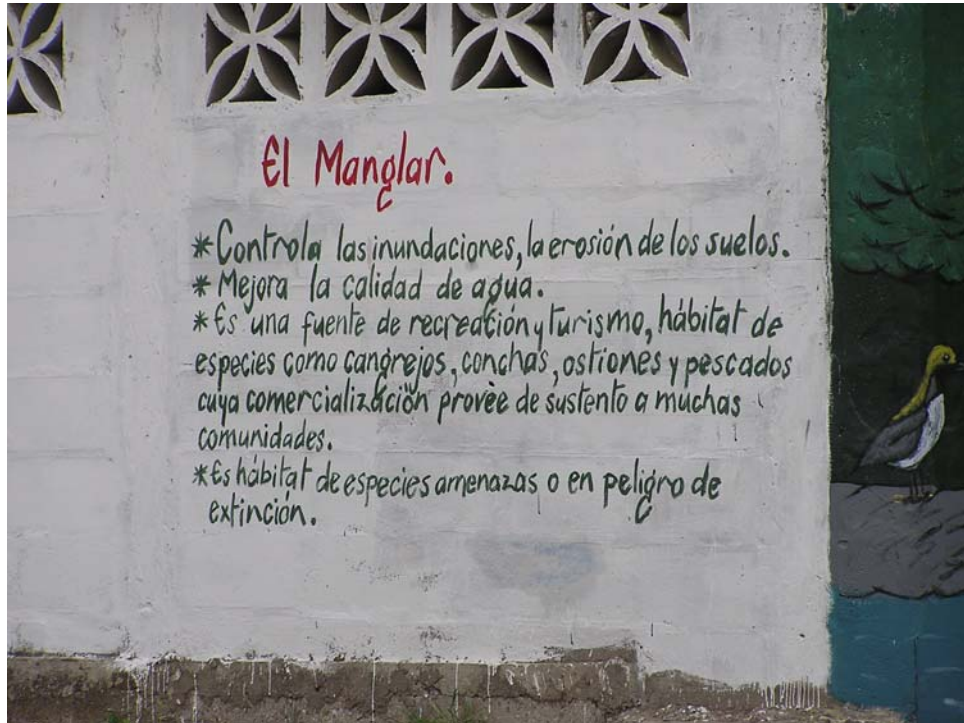 El Manglar.
*Controla las inundaciones, la erosión de los suelos.
* Mejora la calidad de agua.
*Es una fuente de recreación y turismo, hábitat de
especies como cangrejos, conchas, ostiones y pescados
cuya comercialización provèe de sustento a muchas
comunidades.
*Es hábitat de especies amenazas o en peligro de
extinción.